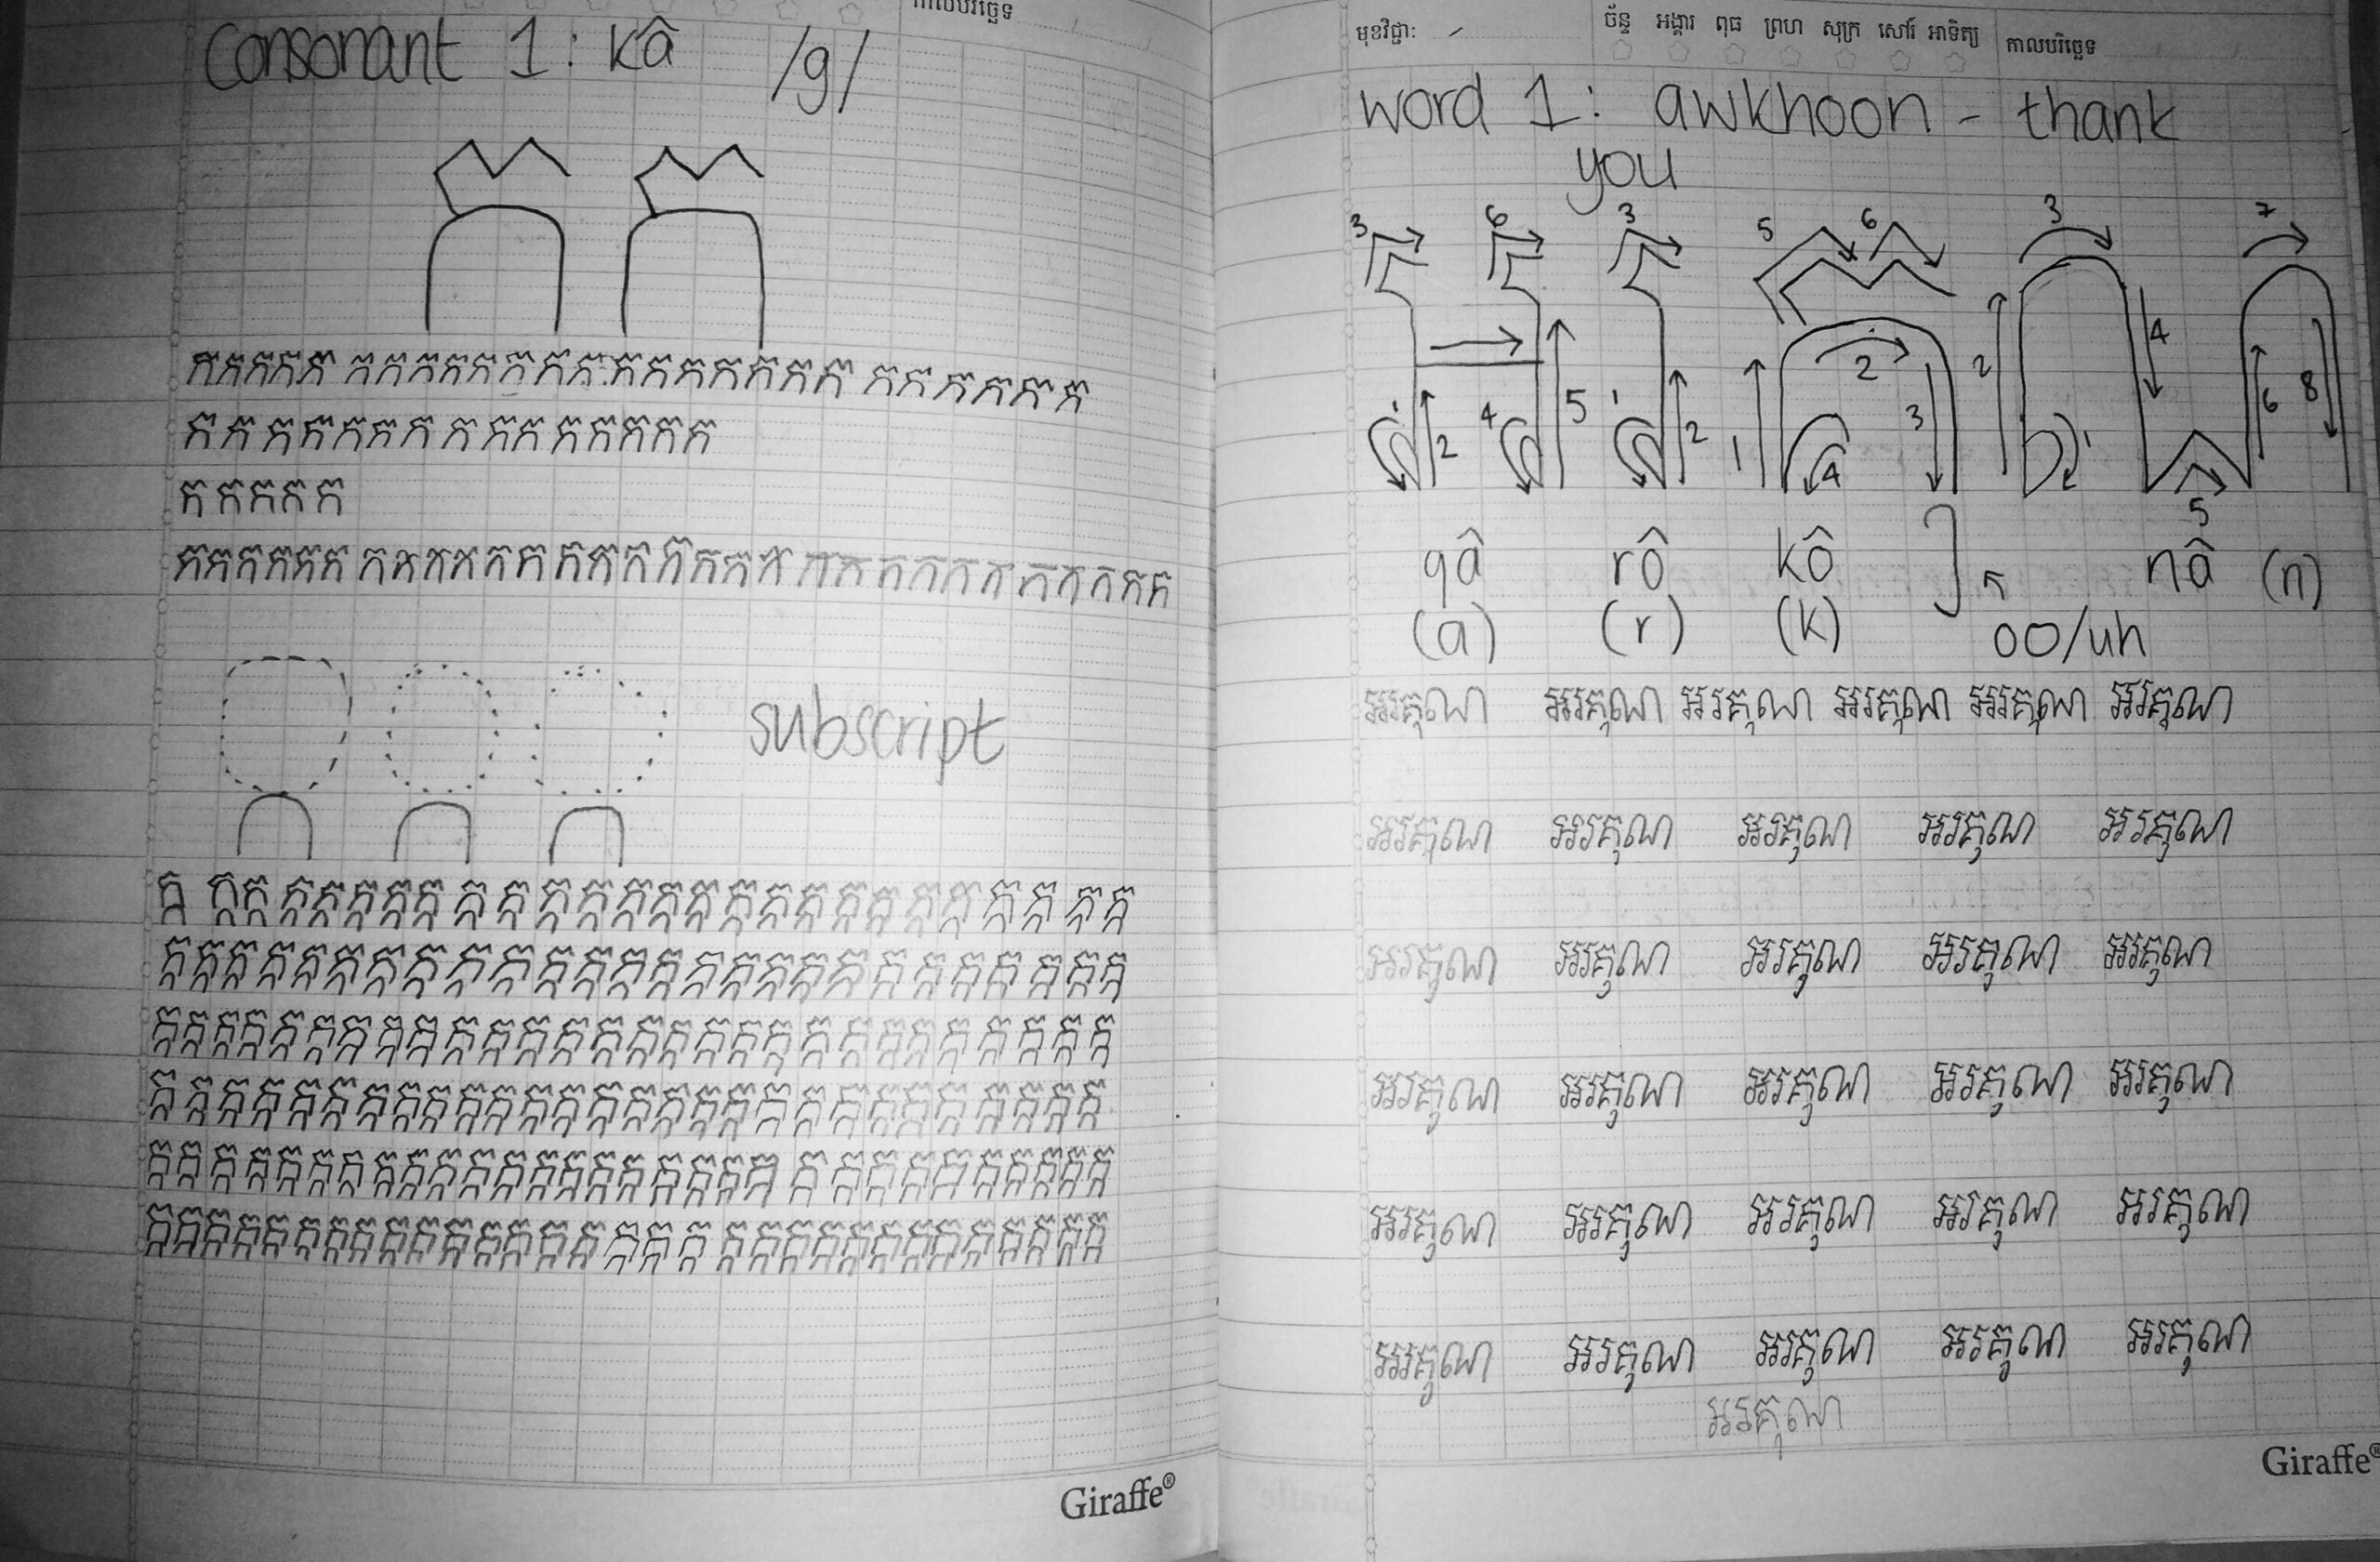 កាលបរិច្ឆេទ
Consonant 1: kâ /g/
ក ក
ក ក ក ក ក ក ក ក ក ក ក ក ក ក ក ក ក ក ក ក ក ក ក ក ក ក
ក ក ក ក ក ក ក ក ក ក ក ក ក ក ក
ក ក ក ក ក
ក ក ក ក ក ក ក ក ក ក ក ក ក ក ក ក ក ក ក ក ក ក ក ក ក ក ក ក ក ក
subscript
ក្ក ក្ក ក្ក ក្ក ក្ក ក្ក ក្ក ក្ក ក្ក ក្ក ក្ក ក្ក ក្ក ក្ក ក្ក ក្ក ក្ក ក្ក ក្ក ក្ក ក្ក ក្ក ក្ក ក្ក ក្ក ក្ក
ក្ក ក្ក ក្ក ក្ក ក្ក ក្ក ក្ក ក្ក ក្ក ក្ក ក្ក ក្ក ក្ក ក្ក ក្ក ក្ក ក្ក ក្ក ក្ក ក្ក ក្ក ក្ក ក្ក ក្ក ក្ក ក្ក
ក្ក ក្ក ក្ក ក្ក ក្ក ក្ក ក្ក ក្ក ក្ក ក្ក ក្ក ក្ក ក្ក ក្ក ក្ក ក្ក ក្ក ក្ក ក្ក ក្ក ក្ក ក្ក ក្ក ក្ក ក្ក ក្ក ក្ក ក្ក
ក្ក ក្ក ក្ក ក្ក ក្ក ក្ក ក្ក ក្ក ក្ក ក្ក ក្ក ក្ក ក្ក ក្ក ក្ក ក្ក ក្ក ក្ក ក្ក ក្ក ក្ក ក្ក ក្ក ក្ក ក្ក ក្ក ក្ក
ក្ក ក្ក ក្ក ក្ក ក្ក ក្ក ក្ក ក្ក ក្ក ក្ក ក្ក ក្ក ក្ក ក្ក ក្ក ក្ក ក្ក ក្ក ក្ក ក្ក ក្ក ក្ក ក្ក ក្ក ក្ក ក្ក ក្ក ក្ក
ក្ក ក្ក ក្ក ក្ក ក្ក ក្ក ក្ក ក្ក ក្ក ក្ក ក្ក ក្ក ក្ក ក្ក ក្ក ក្ក ក្ក ក្ក ក្ក ក្ក ក្ក ក្ក ក្ក ក្ក ក្ក ក្ក ក្ក ក្ក ក្ក ក្ក
Giraffe®
មុខវិជ្ជា: ច័ន្ទ អង្គារ ពុធ ព្រហ សុក្រ សៅរ៍ អាទិត្យ កាលបរិច្ឆេទ
word 1: awkhoon - thank
you
3 6 3 5 6 3 7
អរគណ
1 2 4 5 1 2 1 2 3 4 2 1 4 5 6 8
qâ rô kô nâ (n)
(a) (r) (k) oo/uh
អរគុណ អរគុណ អរគុណ អរគុណ អរគុណ អរគុណ
អរគុណ អរគុណ អរគុណ អរគុណ អរគុណ
អរគុណ អរគុណ អរគុណ អរគុណ អរគុណ
អរគុណ អរគុណ អរគុណ អរគុណ អរគុណ
អរគុណ អរគុណ អរគុណ អរគុណ អរគុណ
អរគុណ អរគុណ អរគុណ អរគុណ អរគុណ
អរគុណ
Giraffe®